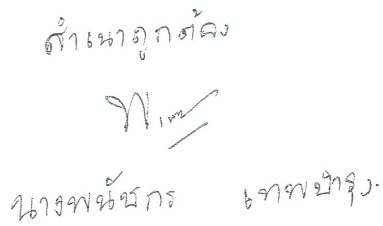 สำเนาถูกต้อง
นางพนัชกร เทพบำรุง